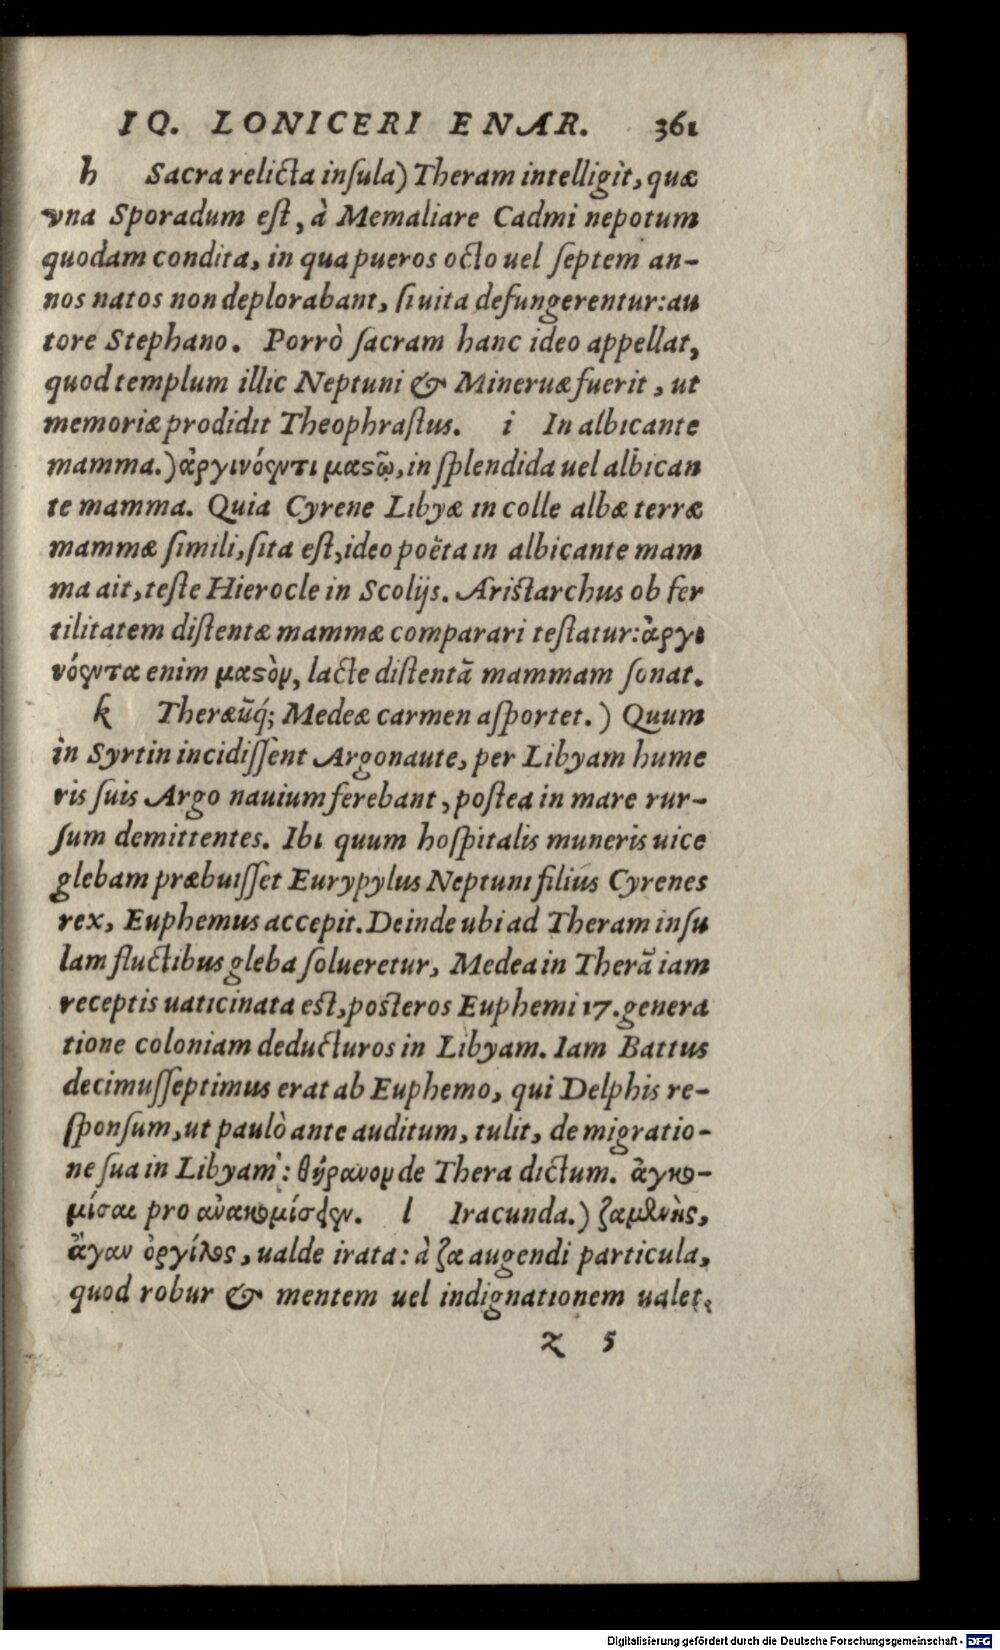 IO. LONICERI ENAR. 361
h Sacra relicta insula) Theram intelligit, quæ
vna Sporadum est, à Memaliare Cadmi nepotum
quodam condita, in qua pueros octo uel septem an-
nos natos non deplorabant, si uita defungerentur: au
tore Stephano. Porrò sacram hanc ideo appellat,
quod templum illic Neptuni & Mineruæ fuerit, ut
memoriæ prodidit Theophrastus. i In albicante
mamma.) ἀργινόεντι μαςῷ, in splendida uel albican
te mamma. Quia Cyrene Libyæ in colle albæ terræ
mammæ simili, sita est, ideo poëta in albicante mam
ma ait, teste Hierocle in Scolijs. Aristarchus ob fer
tilitatem distentæ mammæ comparari testatur: ἀργι
νόεντα enim μαςὸν, lacte distentã mammam sonat.
k Theræũq́; Medeæ carmen asportet.) Quum
in Syrtin incidissent Argonaute, per Libyam hume
ris suis Argo nauium ferebant, postea in mare rur-
sum demittentes. Ibi quum hospitalis muneris uice
glebam præbuisset Eurypylus Neptuni filius Cyrenes
rex, Euphemus accepit. Deinde ubi ad Theram insu
lam fluctibus gleba solueretur, Medea in Therã iam
receptis uaticinata est, posteros Euphemi 17. genera
tione coloniam deducturos in Libyam. Iam Battus
decimusseptimus erat ab Euphemo, qui Delphis re-
sponsum, ut paulò ante auditum, tulit, de migratio-
ne sua in Libyam: θήραιον de Thera dictum. ἀγκο-
μίσαι pro ἀνακομίσειν. l Iracunda.) ζαμενὴς,
ἄγαν ὀργίλος, ualde irata: à ζα augendi particula,
quod robur & mentem uel indignationem ualet.
z 5
Digitalisierung gefördert durch die Deutsche Forschungsgemeinschaft - DFG